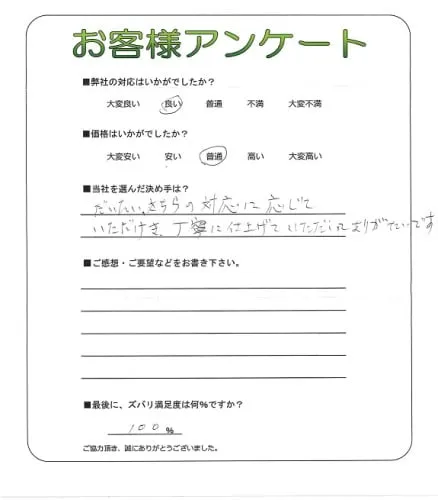 お客様アンケート
■弊社の対応はいかがでしたか？
大変良い 良い 普通 不満 大変不満
■価格はいかがでしたか？
大変安い 安い 普通 高い 大変高い
■当社を選んだ決め手は？
だいたい、きちらの対応に応じて
いただけき、丁寧に仕上げていただけありがたいです
■ご感想・ご要望などをお書き下さい。
■最後に、ズバリ満足度は何％ですか？
100 ％
ご協力頂き、誠にありがとうございました。